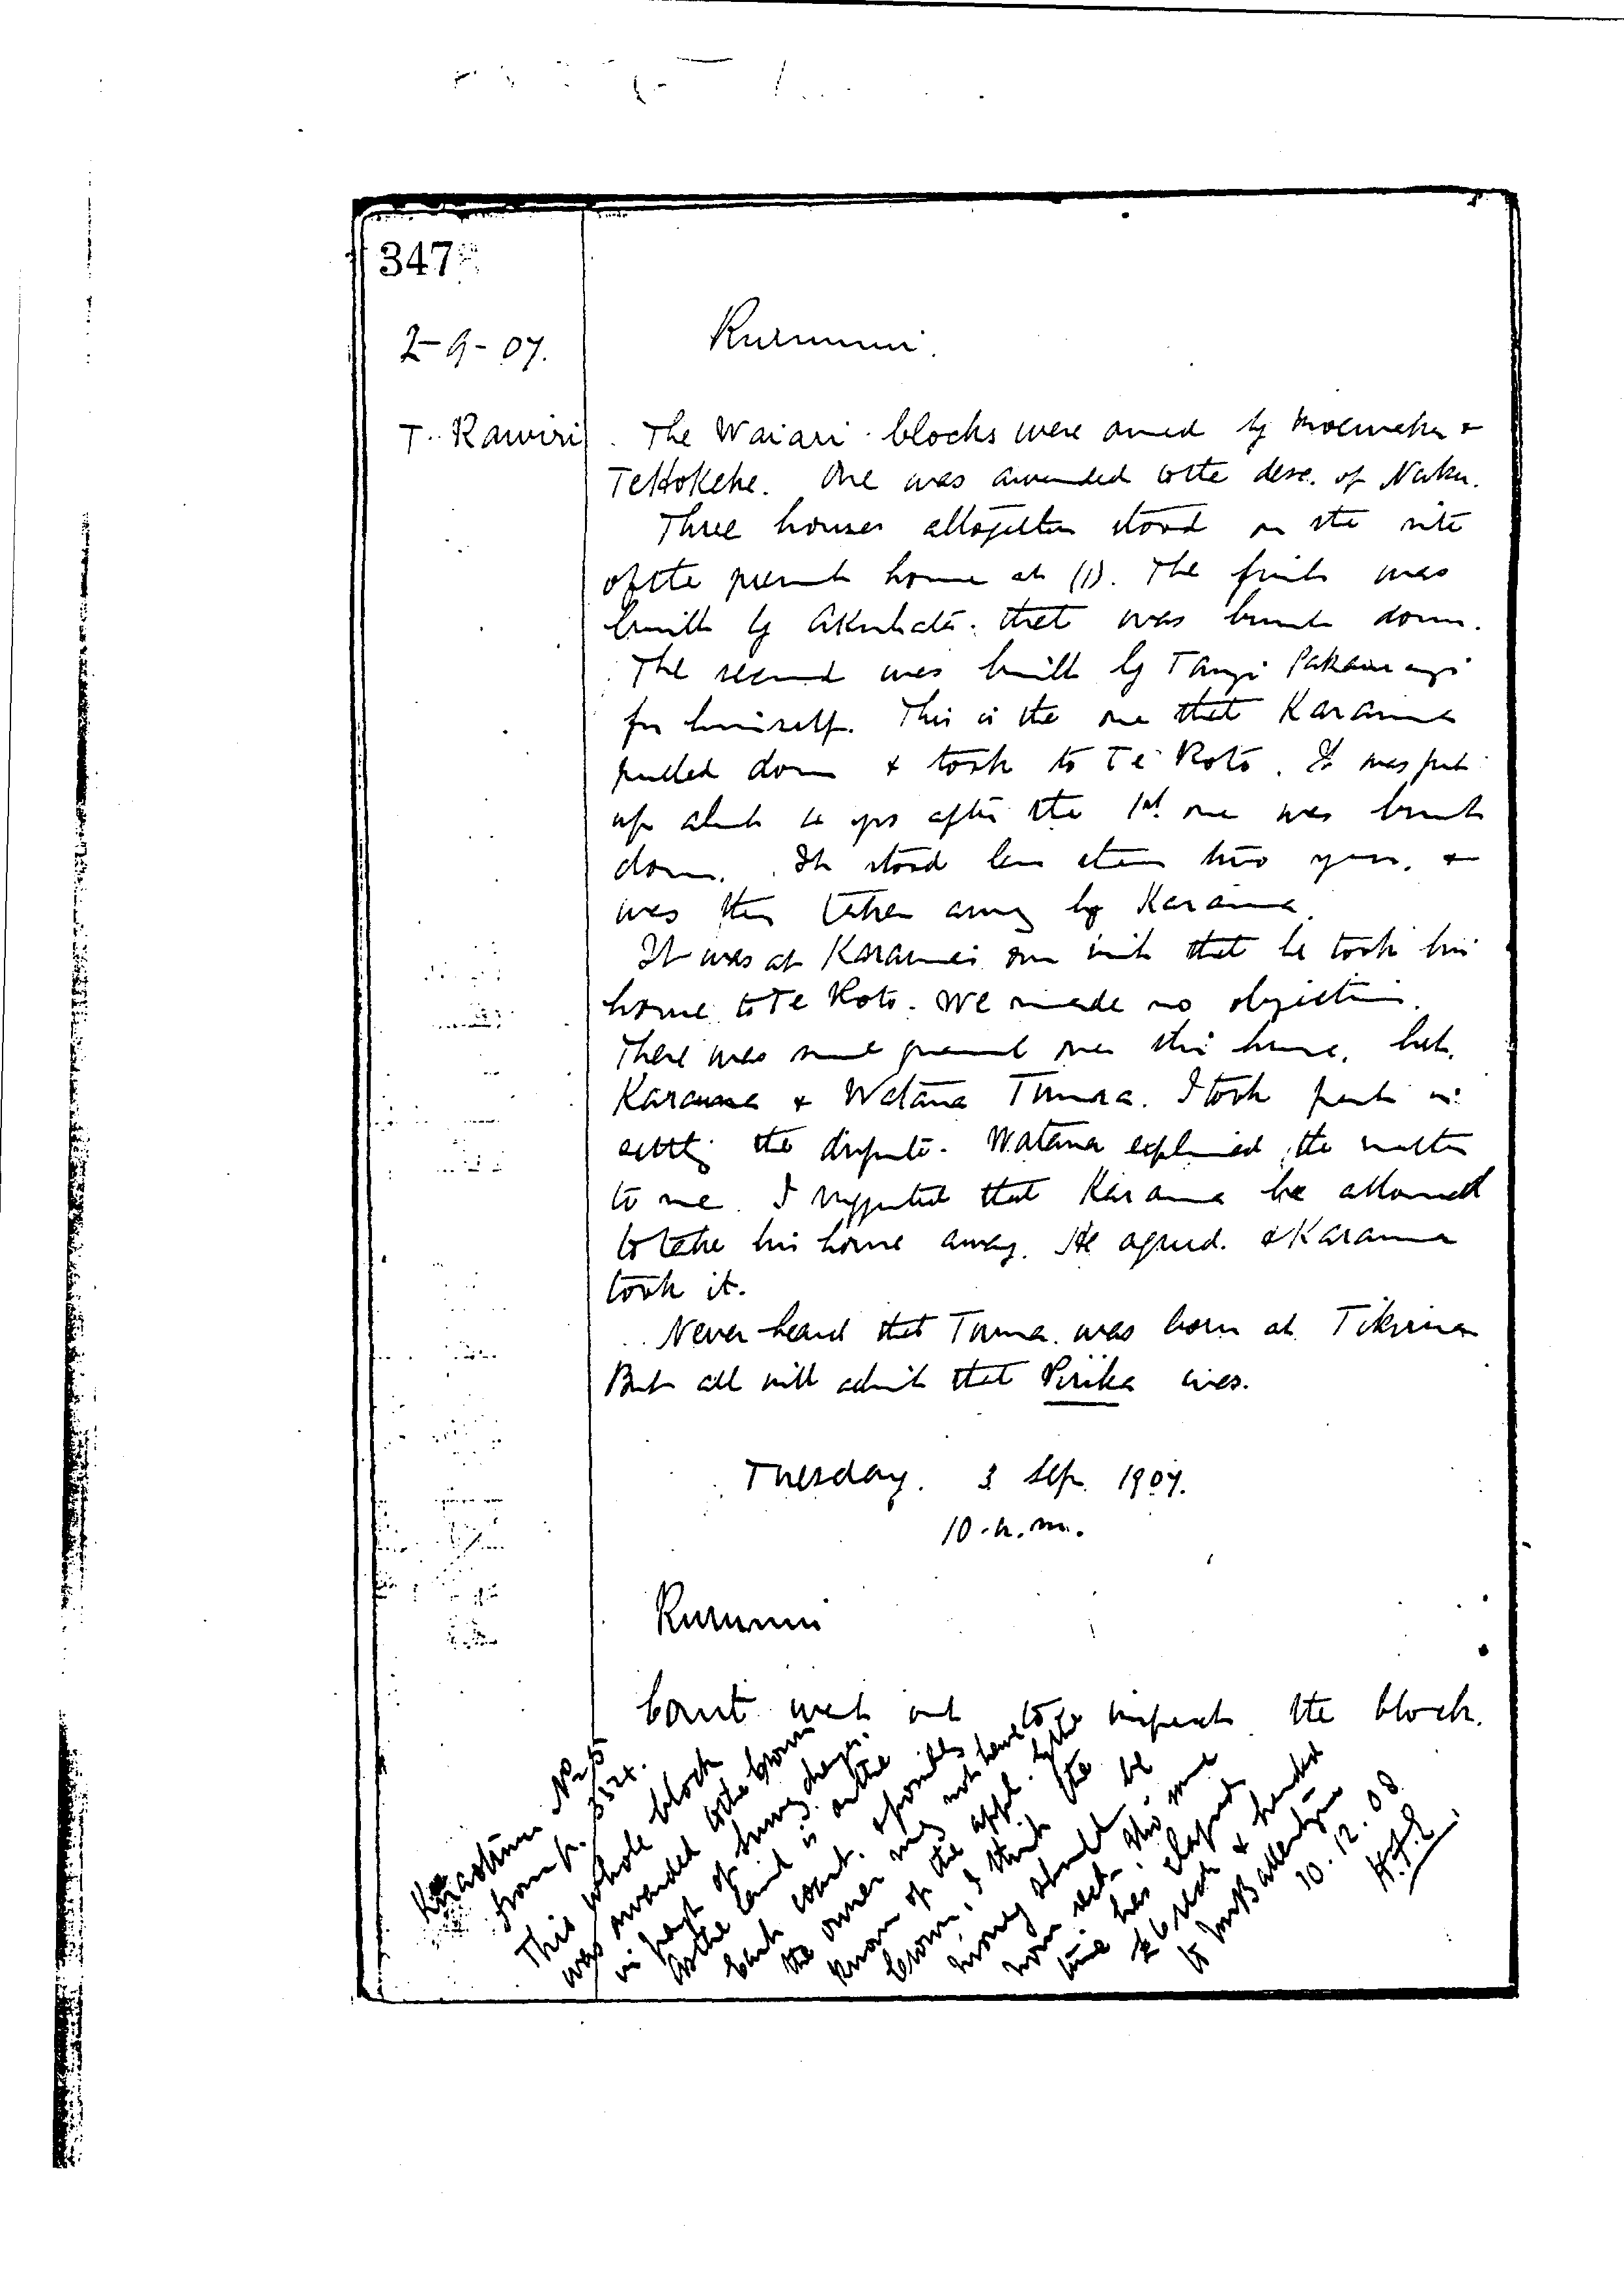 347
2-9-07.
Rurumui.
T. Rawiri
The Waiari blocks were owned by &
Te Hokehe. One was awarded to the desc. of Naku.
Three houses altogether stood on the site
of the present house at (1). The first was
built by Akuhata. that was burnt down.
The second was built by Tangi Pakaurangi
for himself. This is the one that Karama
pulled down & took to Te Roto. It was put
up about yrs after the 1st one was burnt
down. It stood less than two years, &
was then taken away by Karama.
It was at Karama's own wish that he took his
house to Te Roto. We made no objection.
There was some quarrel over this house, bet.
Karama & Watana Tumua. I took part in
settling the dispute. Watana explained the matter
to me. I suggested that Karama be allowed
to take his house away. He agreed. & Karama
took it.
Never heard that Tama was born at
But all will admit that Pirika was.
Tuesday. 3 Sep. 1907.
10 a.m.
Rurumui
Court went out to inspect the block.
No 25
from p. 332.
This whole block
was awarded to the Crown
in payt of survey charges.
As the land is on the
East coast, & possibly
the owner may not have
known of the appl. by the
Crown, I think the
money should be
now recd. tho' some
time has elapsed
£6 recd & handed
to Mr Ballantyne
10.12.08